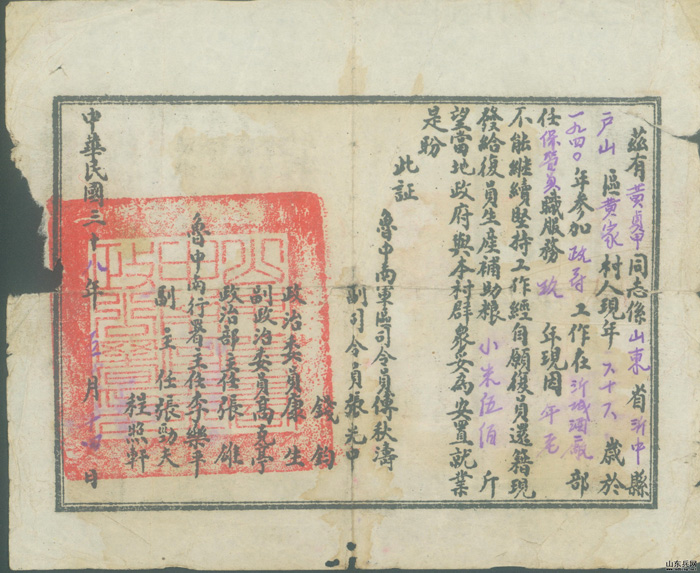 兹有黄 同志係山東省沂中縣
戸山區黄家村人現年六十六歲於
一九四〇年参加政府工作在沂城 部
任保管員職服務 年現因年老
不能继續堅持工作經自願復員還籍現
發給復員生產補助粮小米伍佰斤
望當地政府與本村群衆妥為安置就業
是盼
此証
魯中南軍區司令員傅秋濤
副司令員張光中
錢鈞
政治委員康生
副政治委員高克亭
政治部主任張雄
魯中南行署主任李樂平
副主任張勁夫
程照軒
中華民國三十八年 月十 日
山东兵网